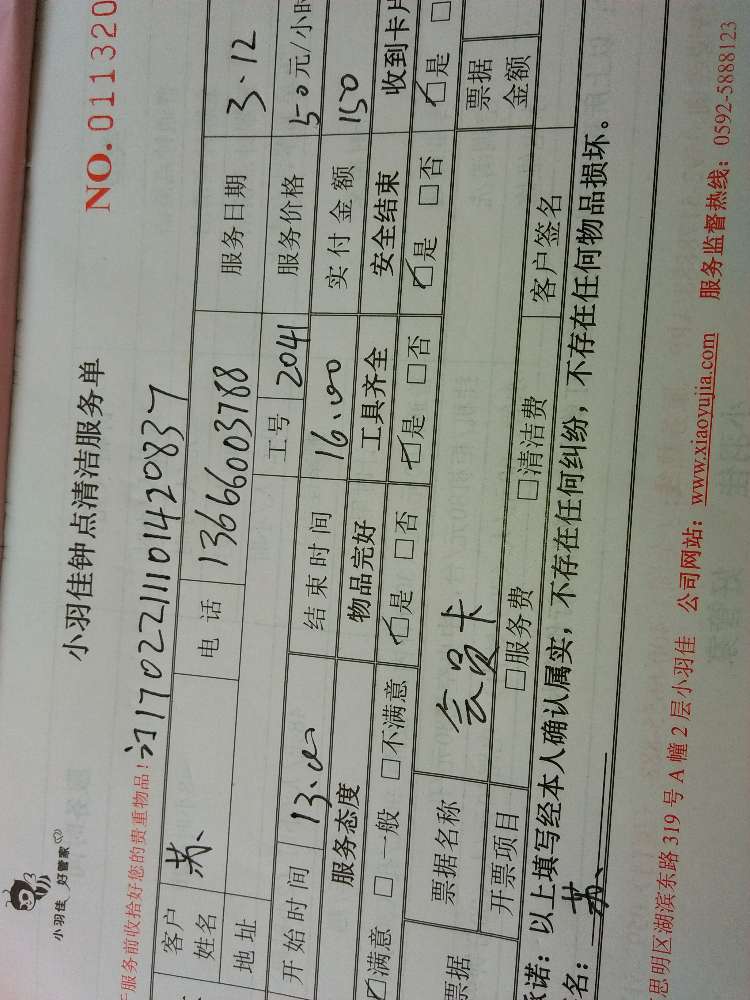 小羽佳 好管家
小羽佳钟点清洁服务单
NO.011320
服务前收拾好您的贵重物品！
订1702211101420837
客户姓名 苏 电话 13666003788 服务日期 3.12
地址 工号 2041 服务价格 50元/小时
开始时间 13.00 结束时间 16.00 实付金额 150
服务态度 物品完好 工具齐全 安全结束 收到卡片
☑满意 □一般 □不满意 ☑是 □否 ☑是 □否 ☑是 □否 ☑是 □
票据 票据名称 会员卡 票据金额
开票项目 □服务费 □清洁费 客户签名
承诺：以上填写经本人确认属实，不存在任何纠纷，不存在任何物品损坏。
名：苏
思明区湖滨东路319号A幢2层小羽佳 公司网站：www.xiaoyujia.com 服务监督热线：0592-5888123